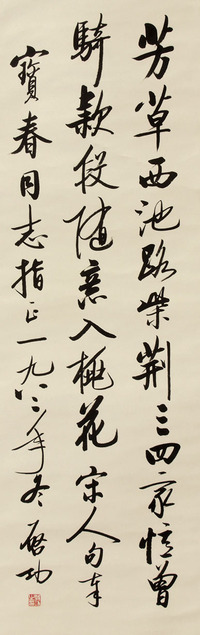 芳草西池路柴荆三四家憶曾
騎款段随意入桃花宋人句奉
寶春同志指正一九八二年冬啟功